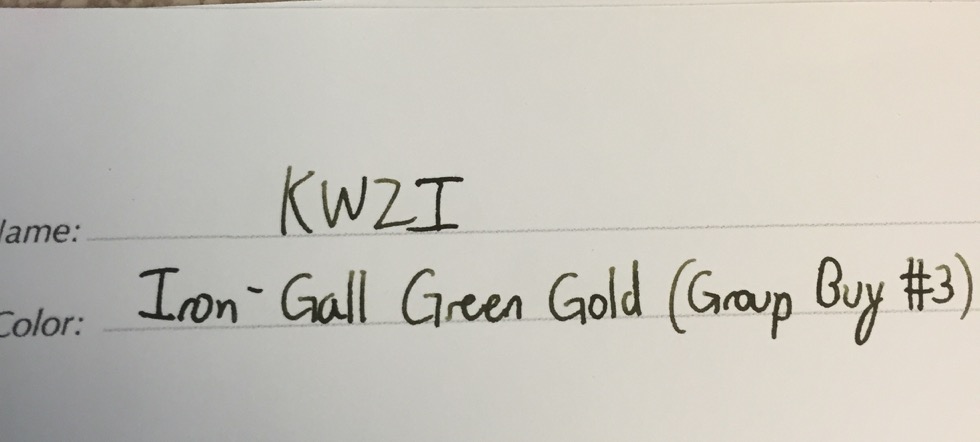 Name: KWZI
Color: Iron-Gall Green Gold (Group Buy #3)